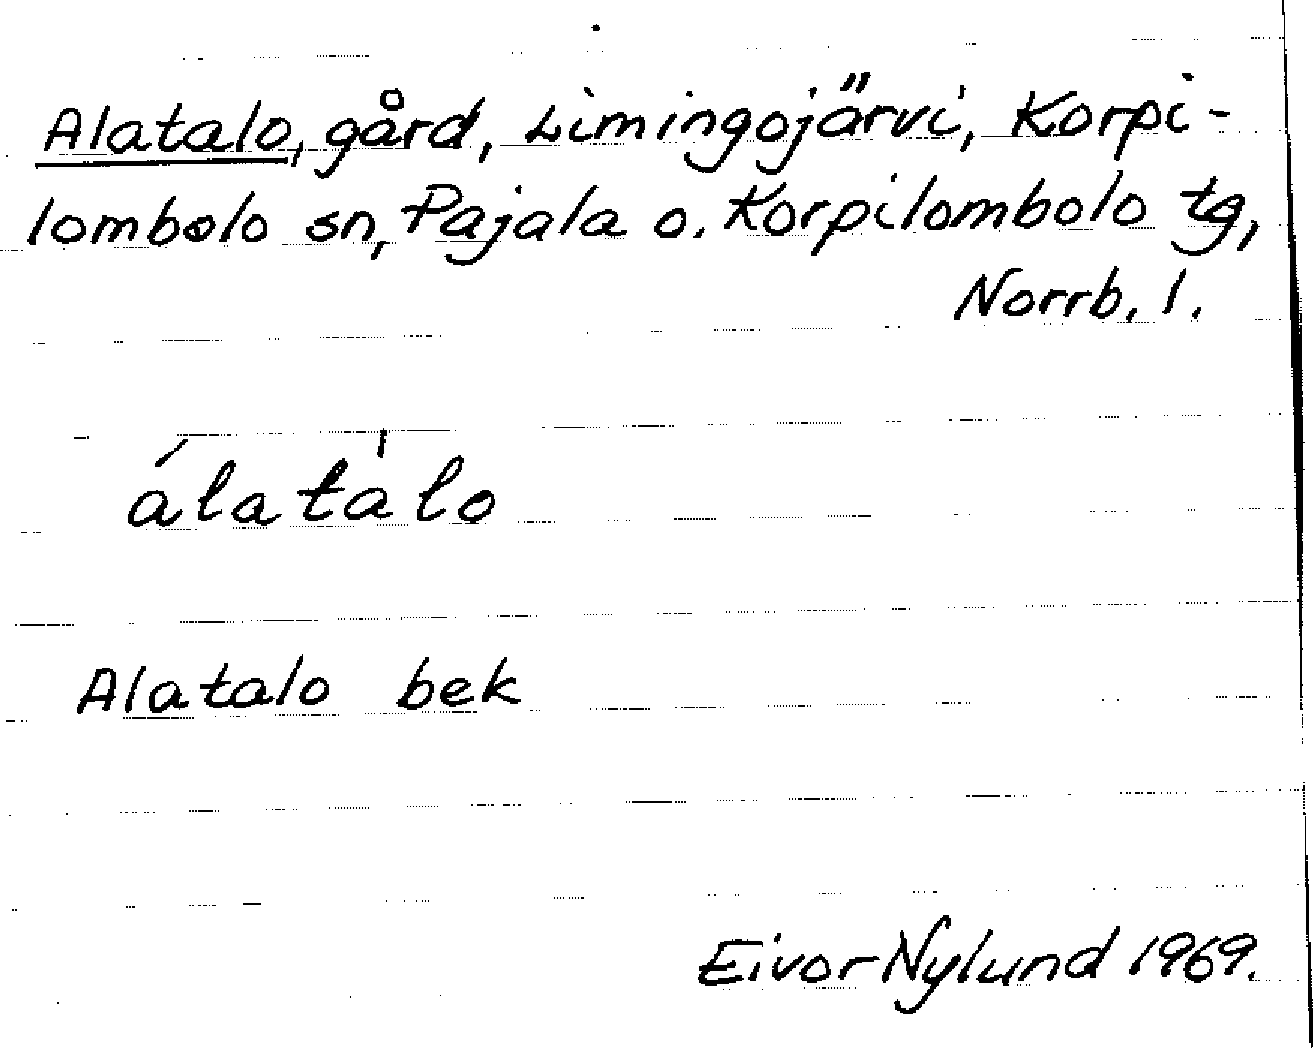 Alatalo, gård, Limingojärvi, Korpi-
lombolo sn, Pajala o. Korpilombolo tg,
Norrb. l.
álatàlo
Alatalo bek
Eivor Nylund 1969.